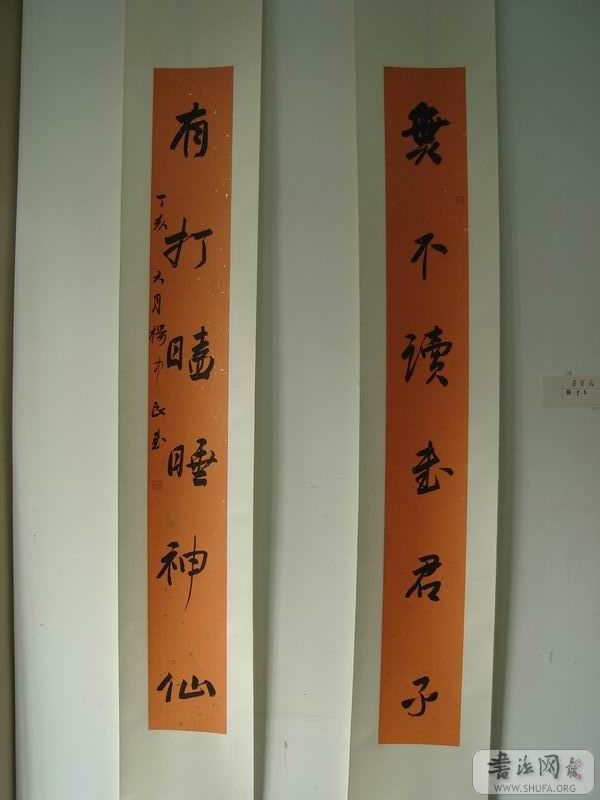 無不讀书君子
有打瞌睡神仙
丁亥六月楊中良书
书法网
WWW.SHUFA.ORG